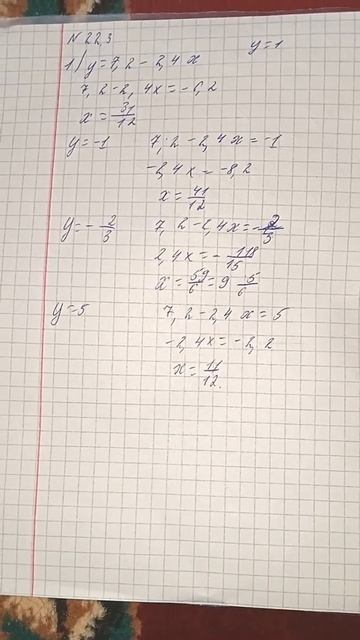 N 22,3
y=1
1) y=7,2-2,4x
7,2-2,4x=-6,2
x=31/12
y=-1 7,2-2,4x=-1
-2,4x=-8,2
x=41/12
y=-2/3 7,2-2,4x=-2/3
2,4x=-118/15
x=59/6=9 5/6
y=5 7,2-2,4x=5
-2,4x=-2,2
x=11/12.